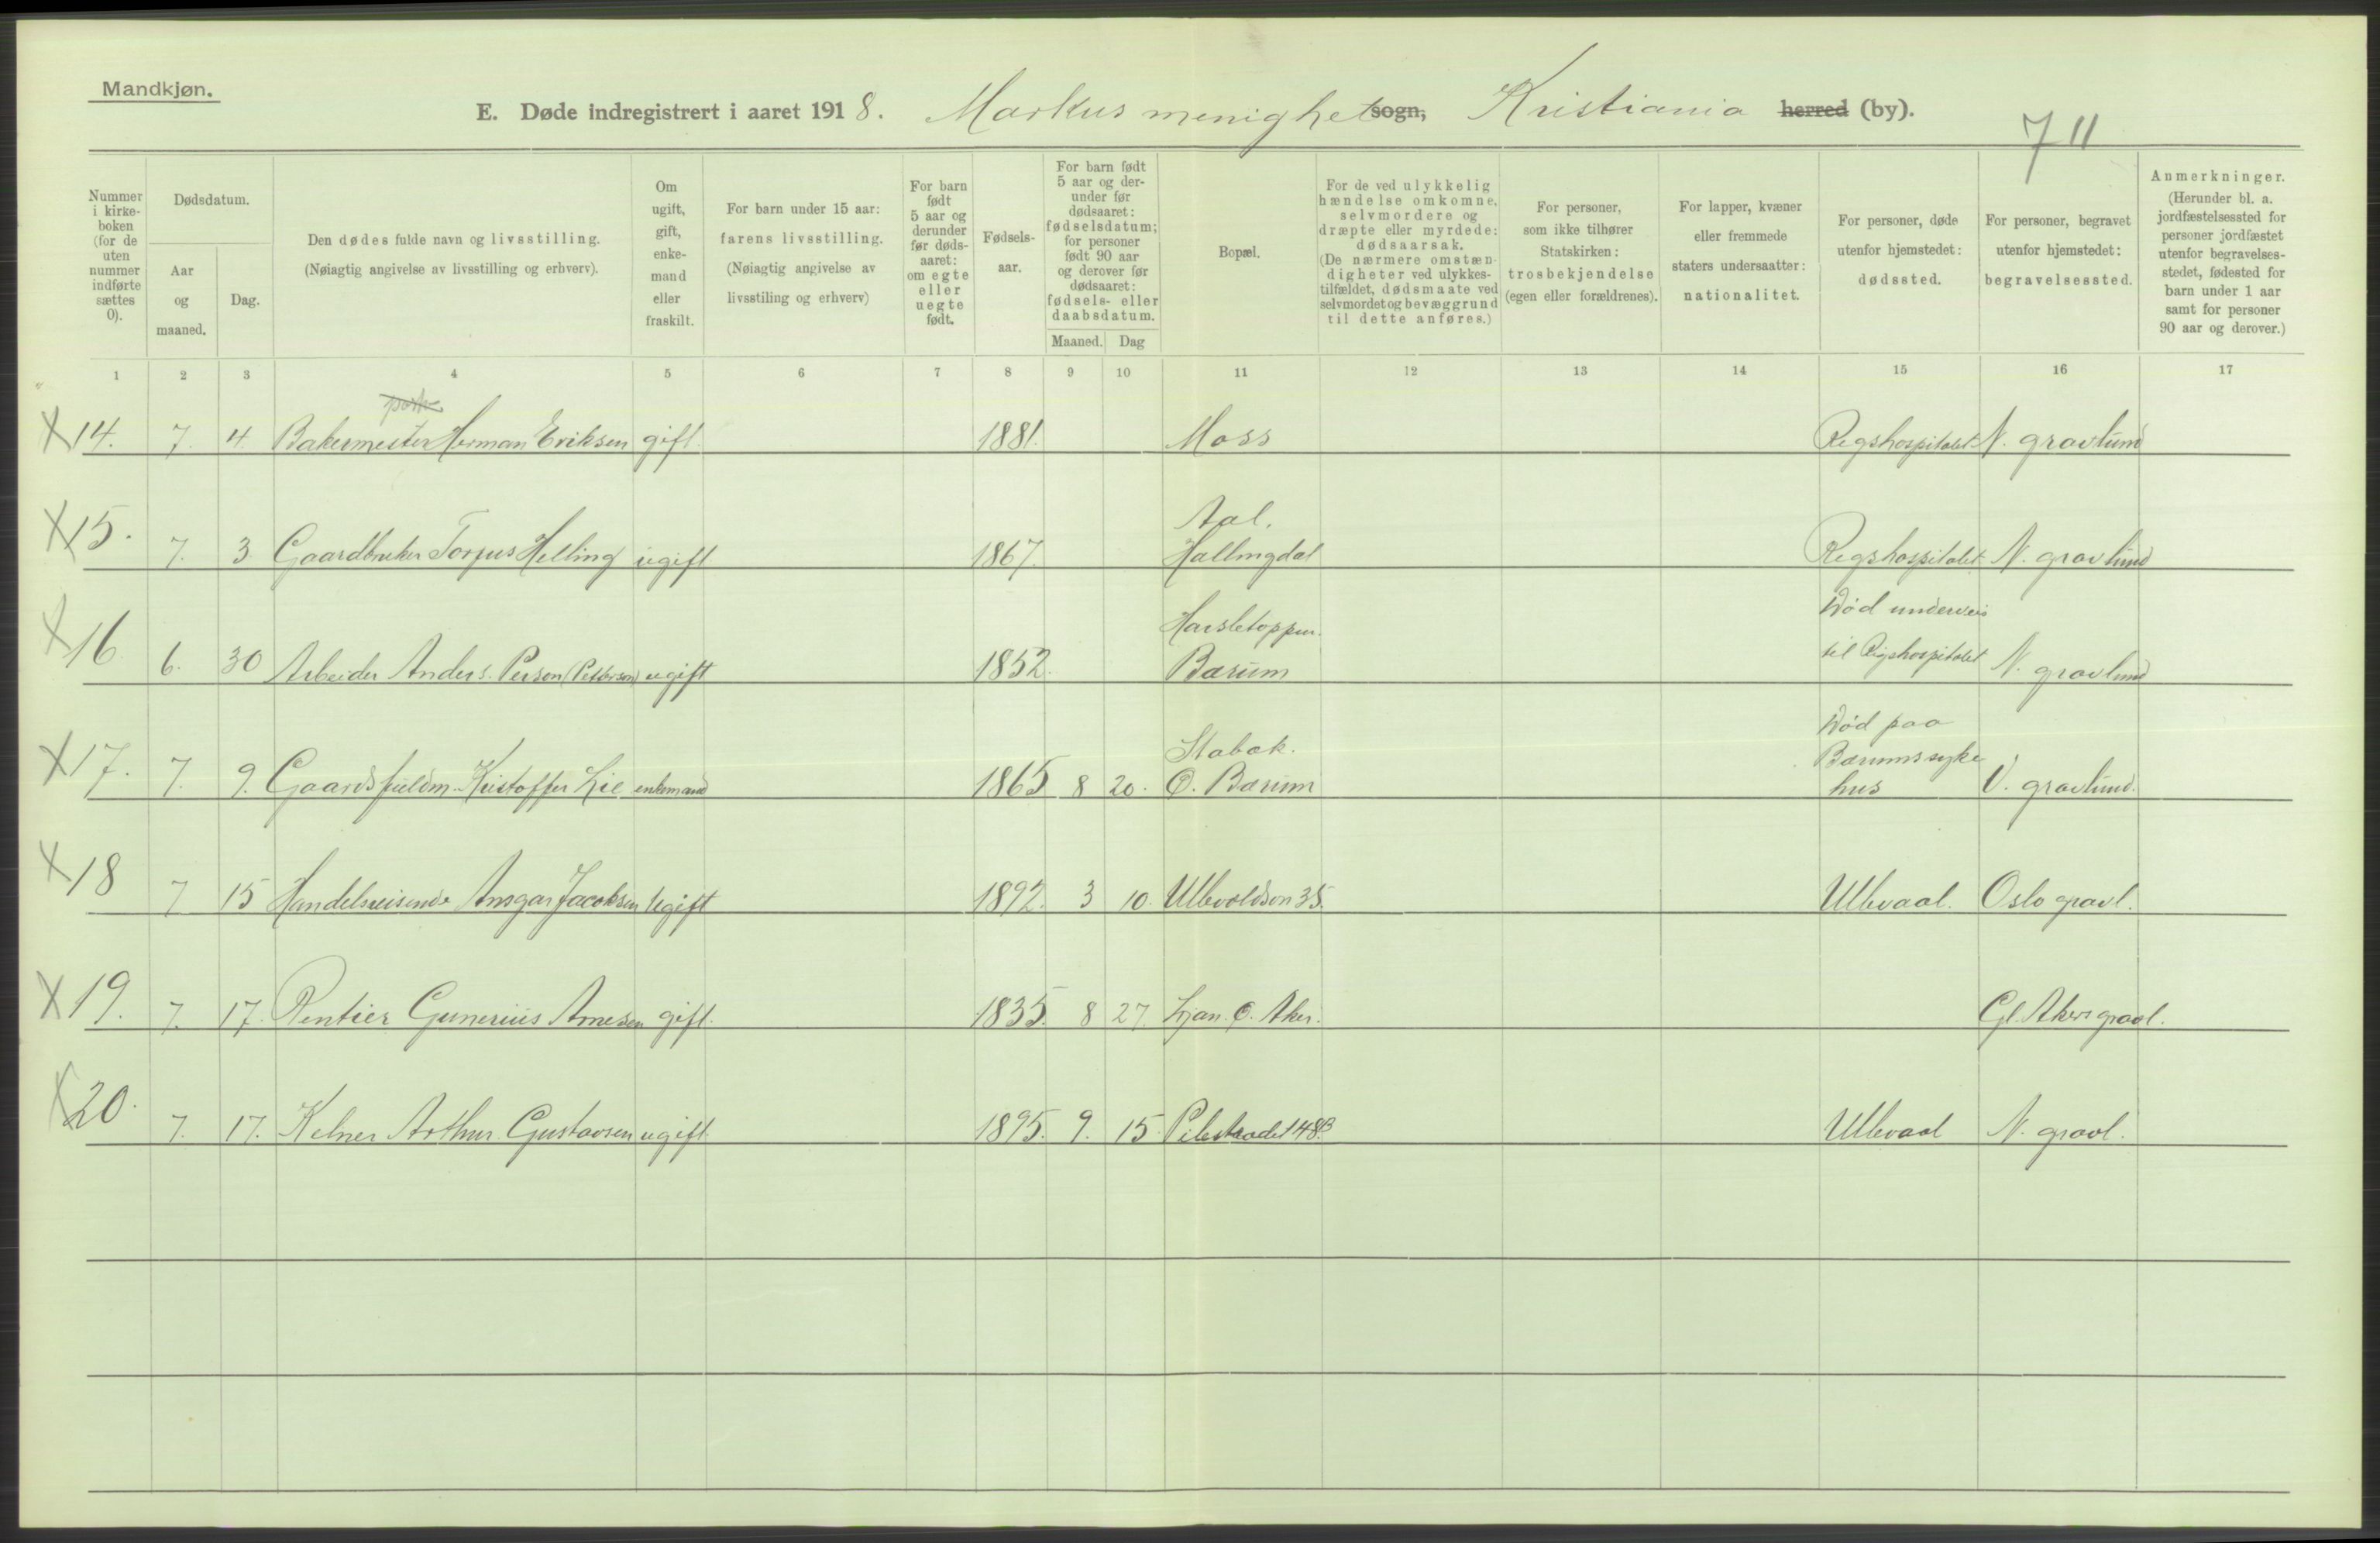 Mandkjøn.
E. Døde indregistrert i aaret 1918. Markus menighet sogn, Kristiania herred (by).
711
Nummer i kirke-boken (for de uten nummer indførte sættes 0).
Dødsdatum.
Aar og maaned.
Dag.
Den dødes fulde navn og livsstilling.
(Nøiagtig angivelse av livsstilling og erhverv).
Om ugift, gift, enke-mand eller fraskilt.
For barn under 15 aar: farens livsstilling.
(Nøiagtig angivelse av livsstiling og erhverv)
For barn født 5 aar og derunder før døds-aaret: om egte eller uegte født.
Fødsels-aar.
For barn født 5 aar og der-under før dødsaaret: fødselsdatum; for personer født 90 aar og derover før dødsaaret: fødsels- eller daabsdatum.
Maaned. Dag
Bopæl.
For de ved ulykkelig hændelse omkomne, selvmordere og dræpte eller myrdede: dødsaarsak.
(De nærmere omstæn-digheter ved ulykkes-tilfældet, dødsmaate ved selvmordet og bevæggrund til dette anføres.)
For personer, som ikke tilhører Statskirken: trosbekjendelse (egen eller forældrenes).
For lapper, kvæner eller fremmede staters undersaatter: nationalitet.
For personer, døde utenfor hjemstedet: dødssted.
For personer, begravet utenfor hjemstedet: begravelsessted.
Anmerkninger.
(Herunder bl. a. jordfæstelsessted for personer jordfæstet utenfor begravelses-stedet, fødested for barn under 1 aar samt for personer 90 aar og derover.)
1 2 3 4 5 6 7 8 9 10 11 12 13 14 15 16 17
X 14. 7. 4. Bakermester Herman Eriksen gift. 1881. Moss Rigshospitalet N. gravlund
X 15. 7. 3 Gaardbruker Torjus Helling ugift 1867. Aal. Hallingdal Rigshospitalet N. gravlund
X 16 6. 30 Arbeider Anders Person (Petterson) ugift 1852. Bærum Død underveis til Rigshospitalet N. gravlund
X 17. 7. 9. Gaardsfuldm. Kristoffer Lie enkemand 1865 8 20. Stabæk. Ø. Bærum Død paa Bærums sykehus V. gravlund.
X 18 7 15 Handelsreisende Ansgar Jacobsen Ugift 1892. 3 10. Ullevoldsvn 35. Ullevaal. Oslo gravl.
X 19. 7. 17. Rentier Gunerius Arnesen gift. 1835. 8 27. Ljan. Ø. Aker. Gl. Akers gravl.
X 20. 7. 17. Kelner Arthur Gustavsen ugift. 1895. 9. 15. Pilestrædet 48B Ullevaal N. gravl.